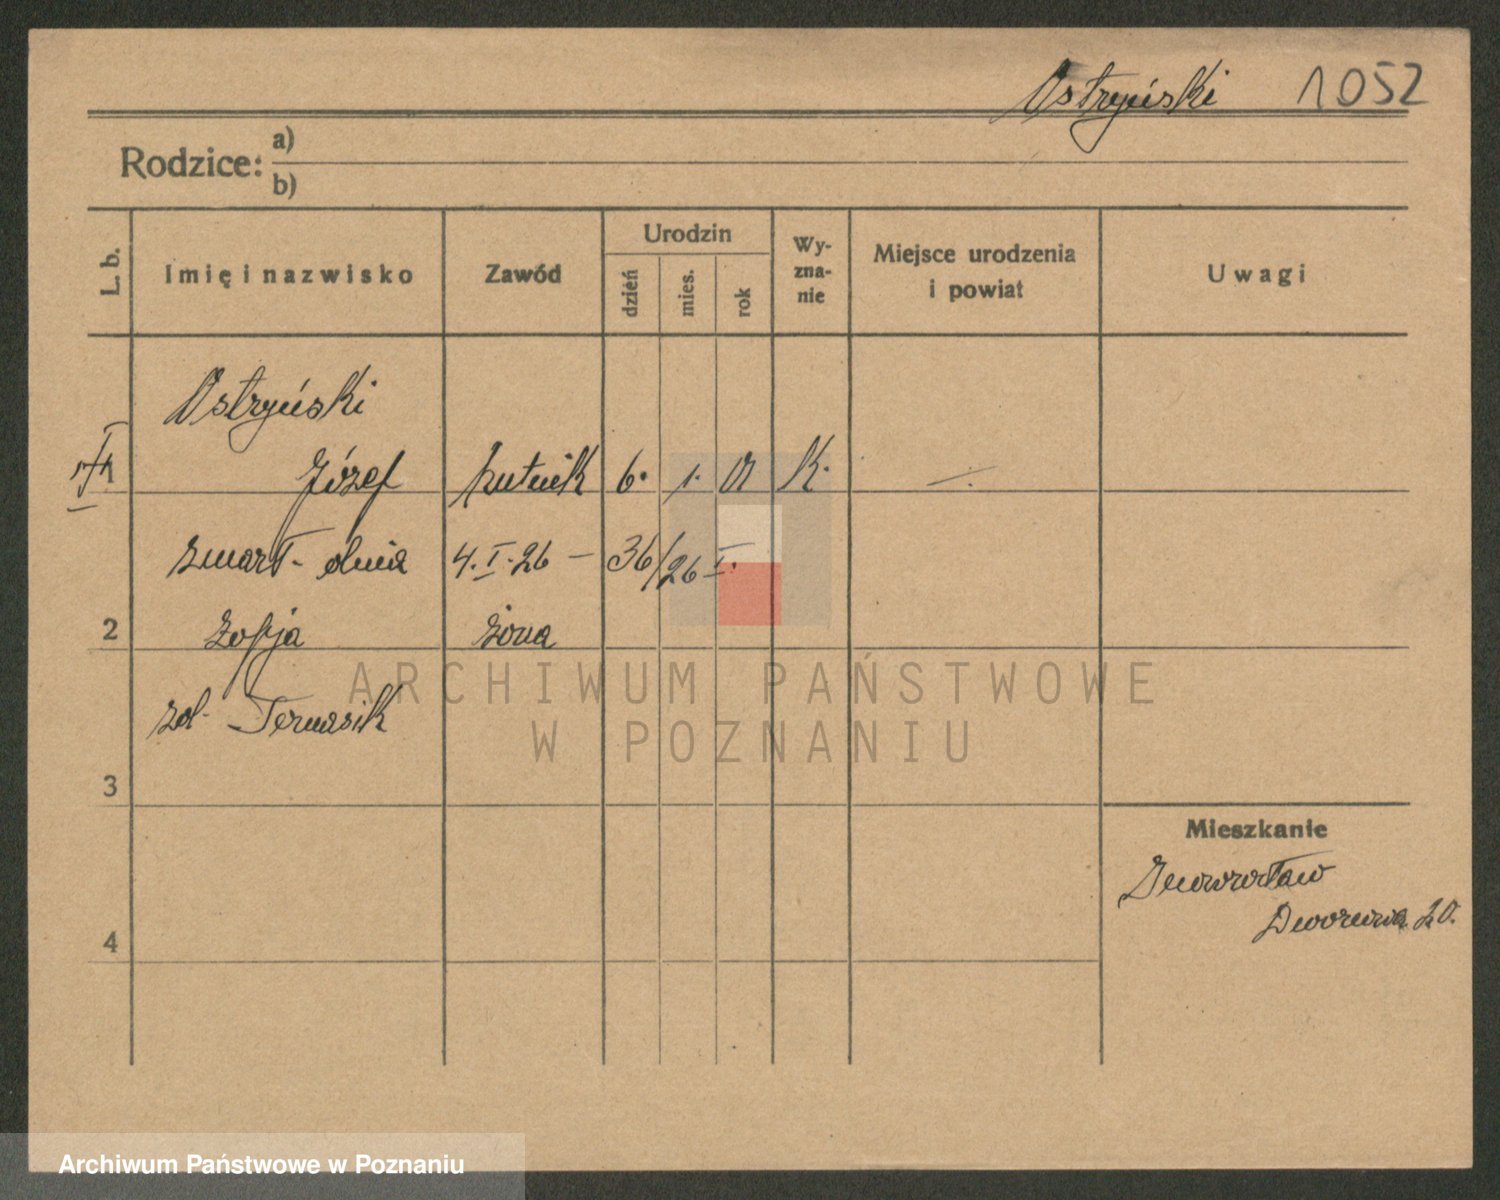 Ostryński 1052
Rodzice: a)
b)
L. b. Imię i nazwisko Zawód Urodzin dzień mies. rok Wy-zna-nie Miejsce urodzenia i powiat Uwagi
Ostryński
1 Józef hutnik 6. 1. 01 K. —.
zmarł dnia 4. I. 26 — 36/26 I.
2 Zofja żona
zd. Ternasik
3
Mieszkanie
Inowrocław
Dworcowa 20.
4
ARCHIWUM PAŃSTWOWE
W POZNANIU
Archiwum Państwowe w Poznaniu